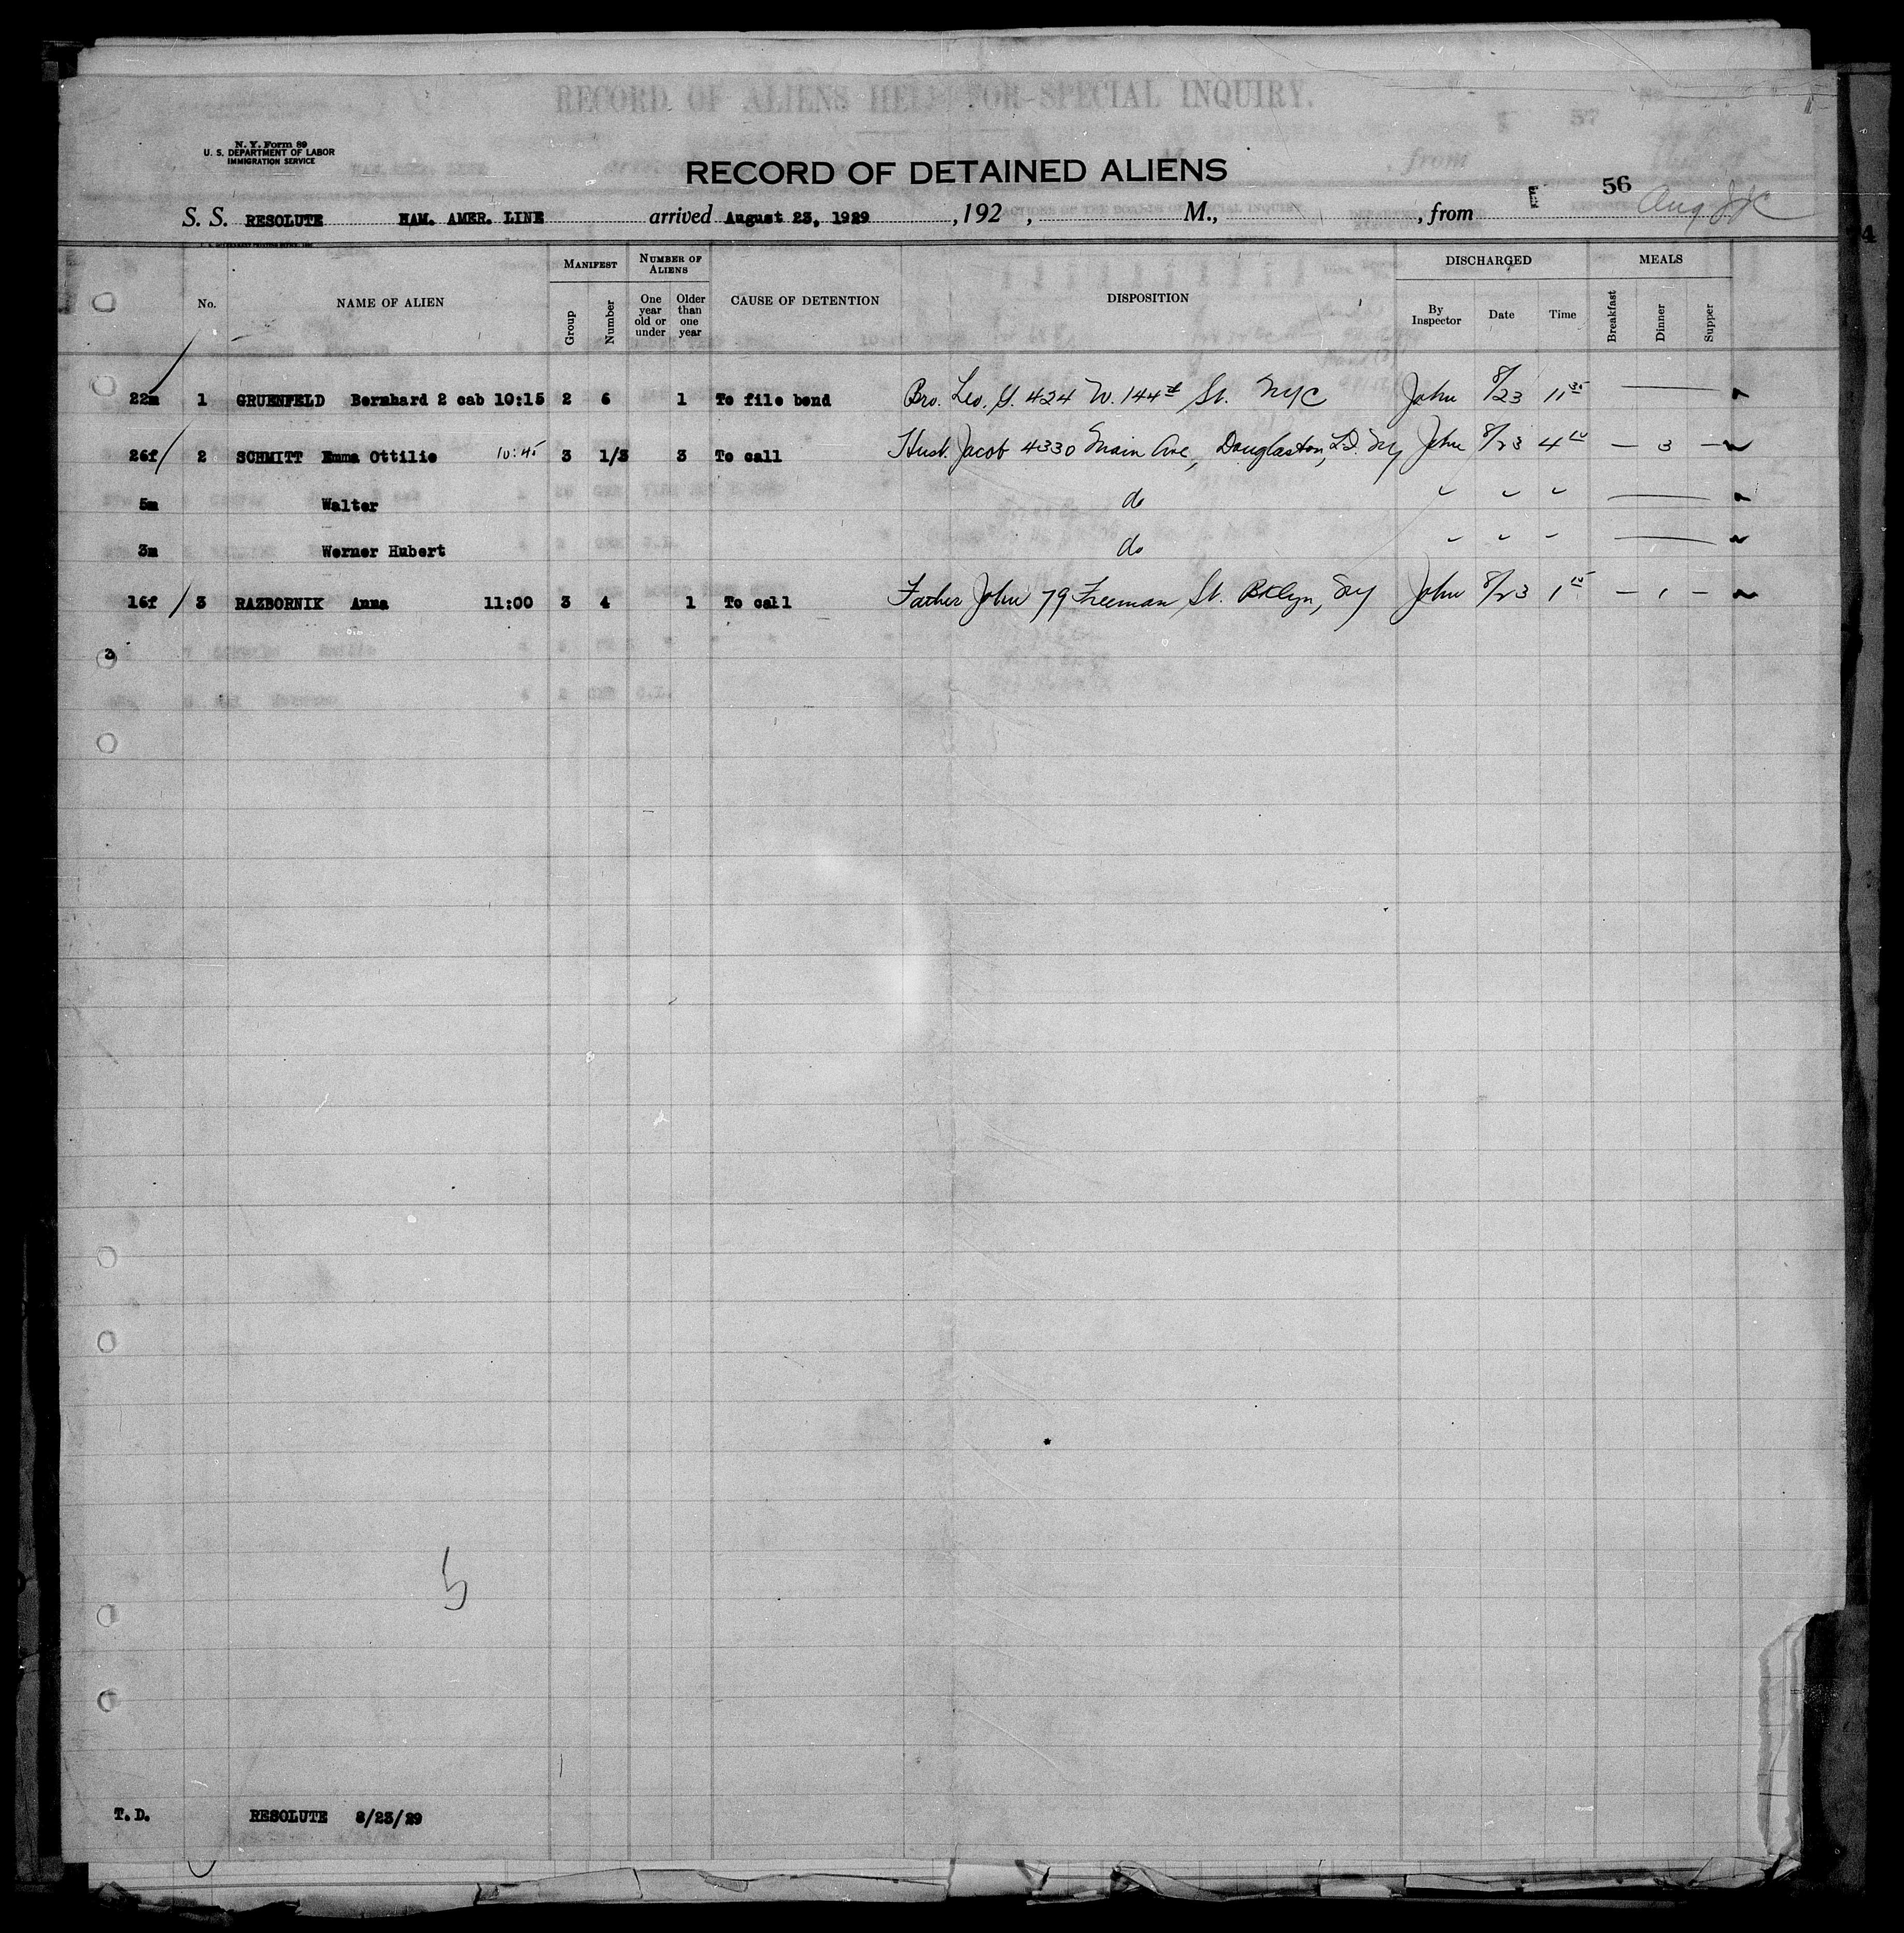 RECORD OF ALIENS HELD FOR SPECIAL INQUIRY.
N. Y. Form 89
U. S. DEPARTMENT OF LABOR
IMMIGRATION SERVICE
RECORD OF DETAINED ALIENS
56
S. S. RESOLUTE HAM. AMER. LINE arrived August 23, 1929, 192 , M., , from
No. NAME OF ALIEN MANIFEST Group Number NUMBER OF ALIENS One year old or under Older than one year CAUSE OF DETENTION DISPOSITION DISCHARGED By Inspector Date Time MEALS Breakfast Dinner Supper
22m 1 GRUENFELD Bernhard 2 cab 10:15 2 6 1 To file bond Bro. Leo. G. 424 W. 144th St. NYC John 8/23 11 35
26f 2 SCHMITT Emma Ottilie 10:45 3 1/3 3 To call Husb. Jacob 4330 Main Ave, Douglaston, L.I. NY John 8/23 4 10 — 3 —
5m Walter do
3m Werner Hubert do
16f 3 RAZBORNIK Anna 11:00 3 4 1 To call Father John 79 Freeman St. Bklyn, NY John 8/23 1 10 — 1 —
3
5
T.D. RESOLUTE 8/23/29